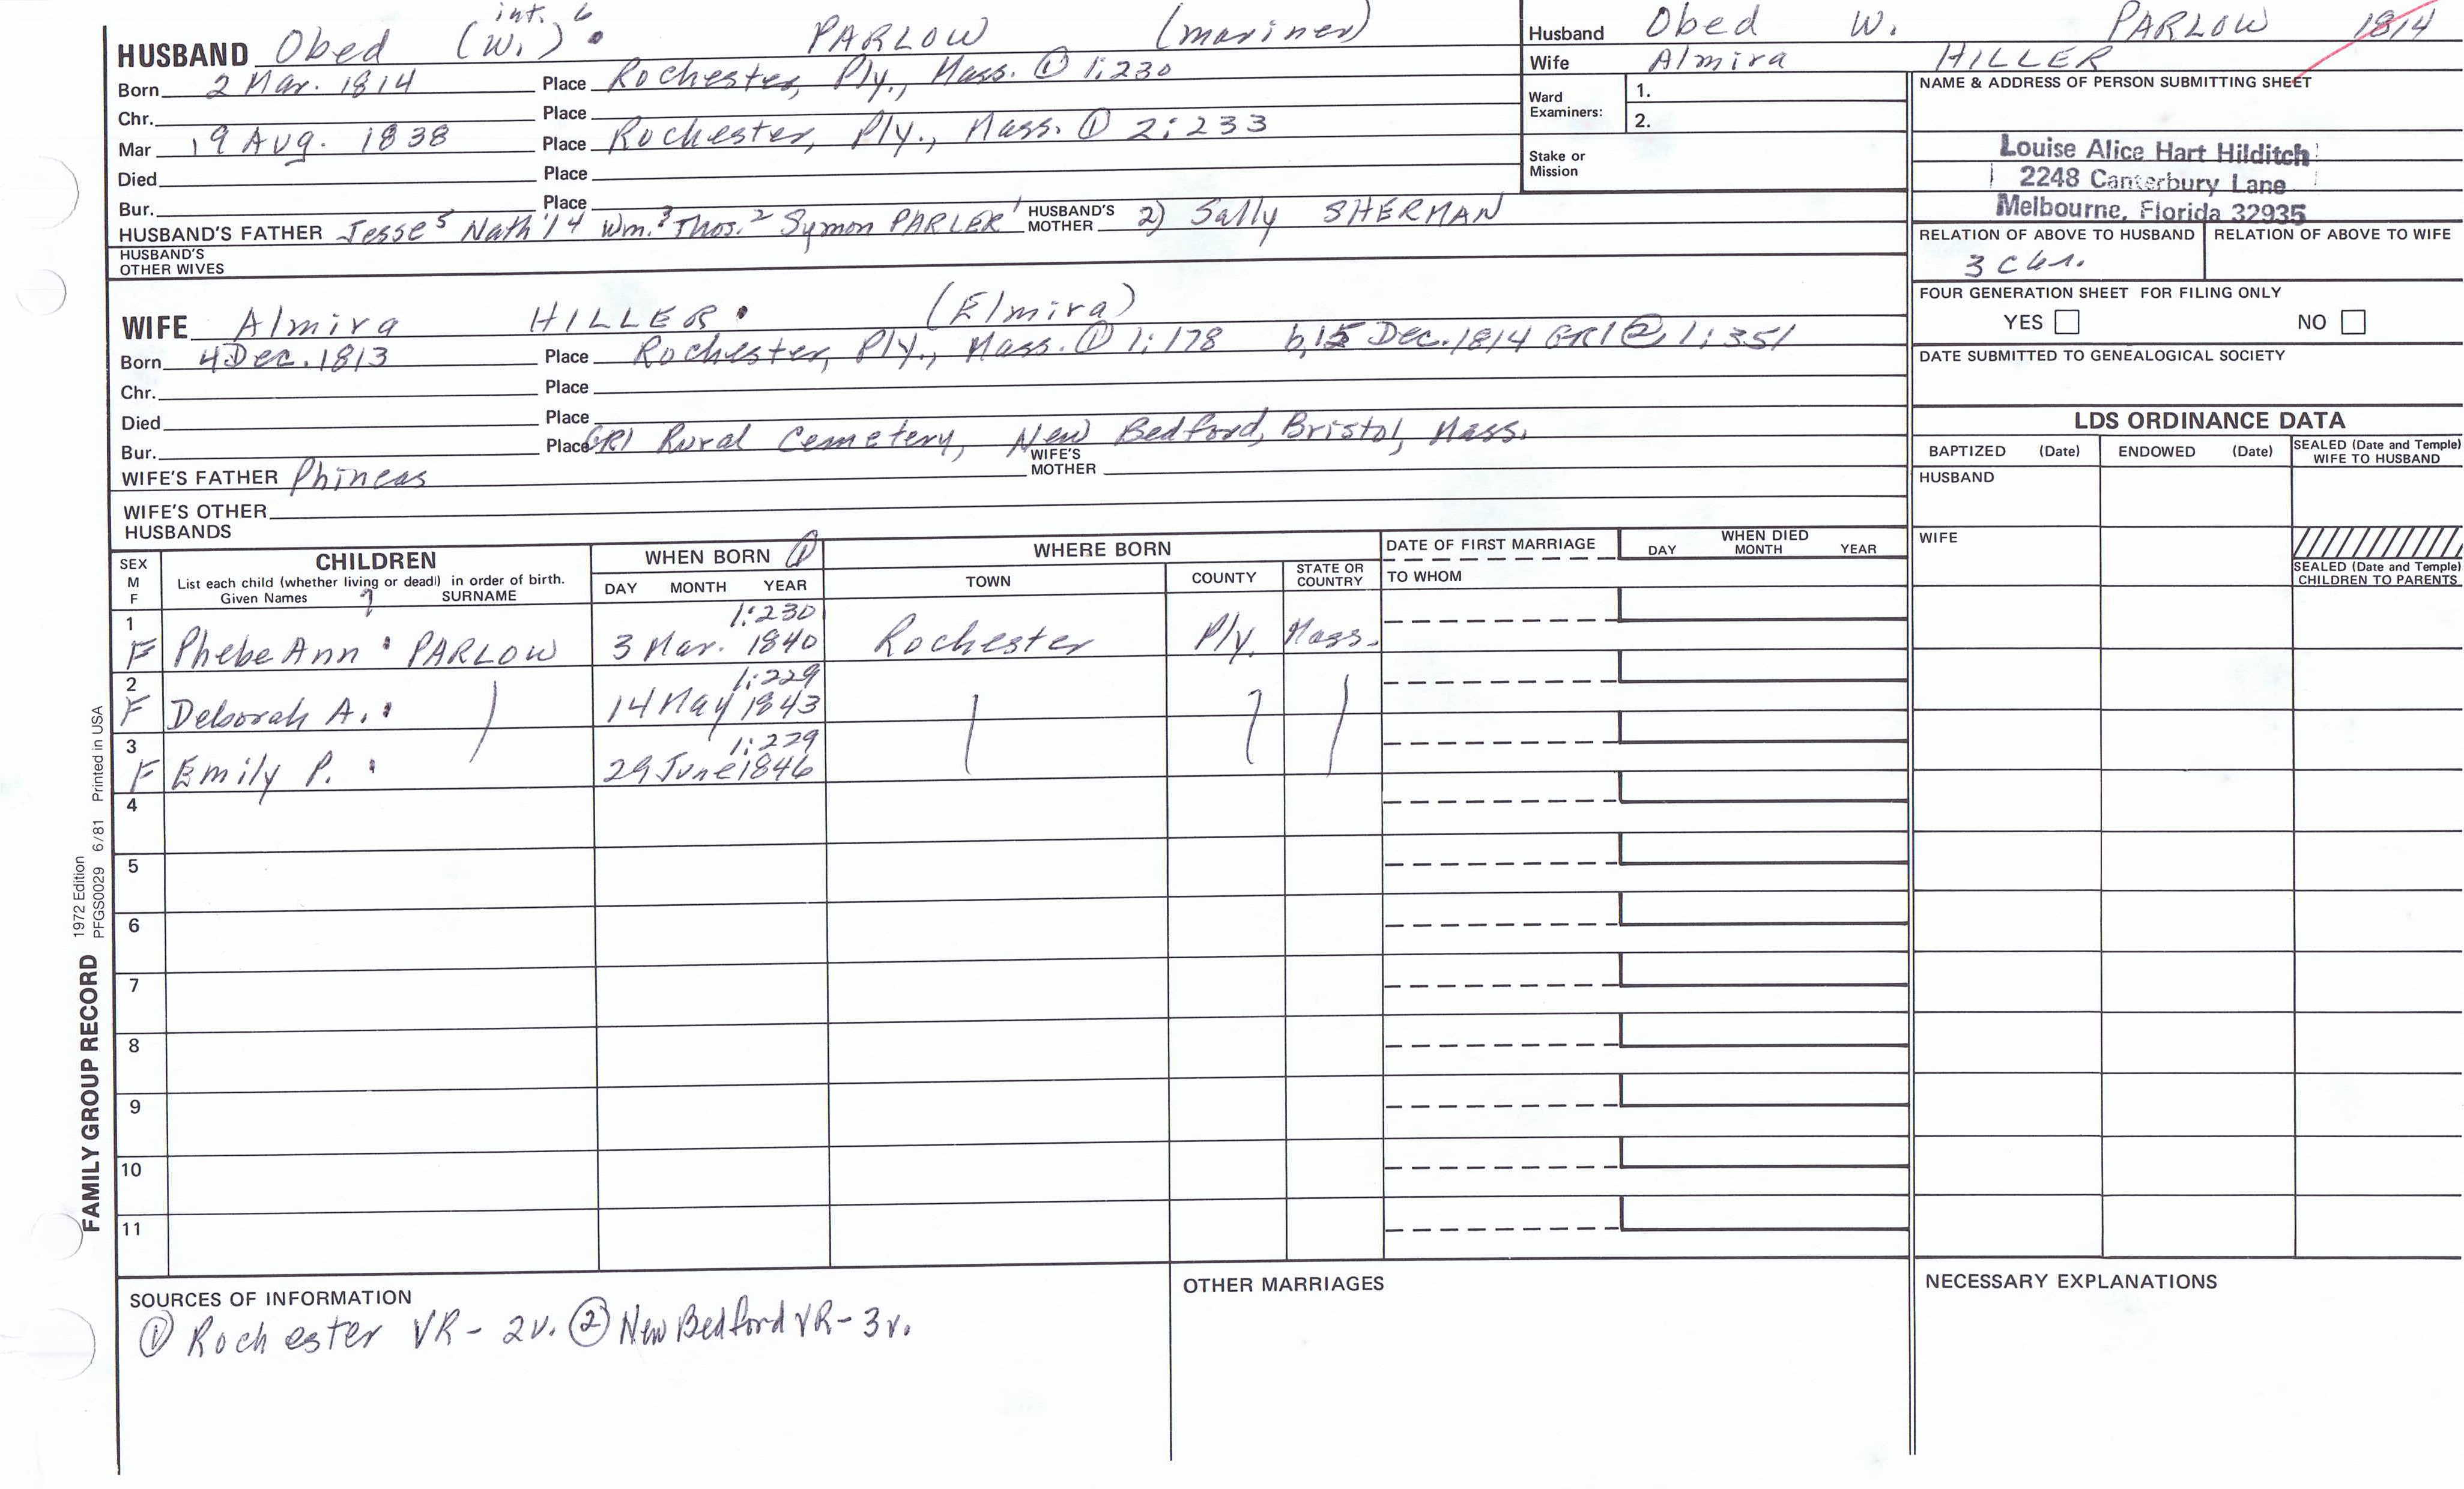 int. 6
HUSBAND Obed (W.) PARLOW (mariner)
Born 2 Mar. 1814 Place Rochester, Ply., Mass. ① 1:230
Chr. Place
Mar 19 Aug. 1838 Place Rochester, Ply., Mass. ① 2:233
Died Place
Bur. Place
HUSBAND'S FATHER Jesse⁵ Nath'l⁴ Wm.³ Thos.² Symon PARLER¹ HUSBAND'S MOTHER 2) Sally SHERMAN
HUSBAND'S OTHER WIVES
Husband Obed W. PARLOW 1814
Wife Almira HILLER
Ward Examiners: 1.
2.
Stake or Mission
NAME & ADDRESS OF PERSON SUBMITTING SHEET
Louise Alice Hart Hilditch
2248 Canterbury Lane
Melbourne, Florida 32935
RELATION OF ABOVE TO HUSBAND RELATION OF ABOVE TO WIFE
FOUR GENERATION SHEET FOR FILING ONLY
YES NO
DATE SUBMITTED TO GENEALOGICAL SOCIETY
WIFE Almira HILLER (Elmira)
Born 4 Dec. 1813 Place Rochester, Ply., Mass. ① 1:178 b. 15 Dec. 1814 GR1 ② 1:351
Chr. Place
Died Place
Bur. Place GR1 Rural Cemetery, New Bedford, Bristol, Mass.
WIFE'S FATHER Phineas WIFE'S MOTHER
WIFE'S OTHER HUSBANDS
LDS ORDINANCE DATA
BAPTIZED (Date) ENDOWED (Date) SEALED (Date and Temple) WIFE TO HUSBAND
HUSBAND
WIFE
SEALED (Date and Temple) CHILDREN TO PARENTS
SEX M F CHILDREN WHEN BORN ① WHERE BORN DATE OF FIRST MARRIAGE WHEN DIED
List each child (whether living or dead) in order of birth.
Given Names 7 SURNAME DAY MONTH YEAR TOWN COUNTY STATE OR COUNTRY TO WHOM DAY MONTH YEAR
1 1:230
F Phebe Ann PARLOW 3 Mar. 1840 Rochester Ply. Mass.
2 1:229
F Deborah A. 14 May 1843
3 1:229
F Emily P. 29 June 1846
4
5
6
7
8
9
10
11
SOURCES OF INFORMATION
① Rochester VR - 2v. ② New Bedford VR - 3v.
OTHER MARRIAGES
NECESSARY EXPLANATIONS
FAMILY GROUP RECORD 1972 Edition
PFGS0029 6/81 Printed in USA